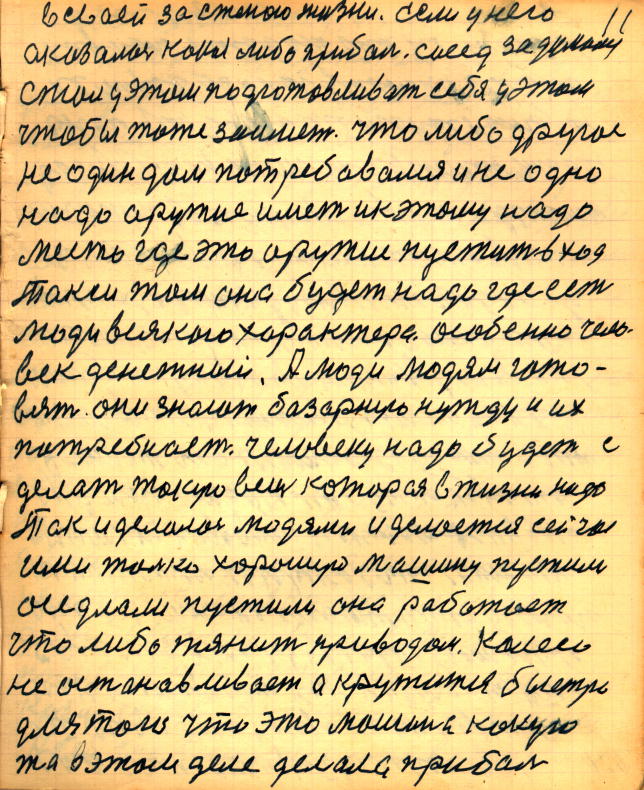 в своей застеною жизни. если у него 11
оказался какой либо прибал. сосед задумал
стал у этом подготовливат себя у этом
чтобы тоже заимет. что либо другое
не один дом потребовался и не одно
надо аружие имет и к этому надо
место где это аружие пустит в ход
Так и там она будет надо где ест
люди всякого характера. особенно чело-
век денежный. А люди людям гото-
вят. они знают базарную нужду и их
потребност. человеку надо будет с
делат такую вещ которая в жизни надо
Так и делалос людями и делается сейчас
ими толко хорошую машину пустили
оседлали пустили она работает
что либо тянит приводом. Колесо
не останавливает а крутится быстро
для того что это машина какую
та в этом деле делала прибал